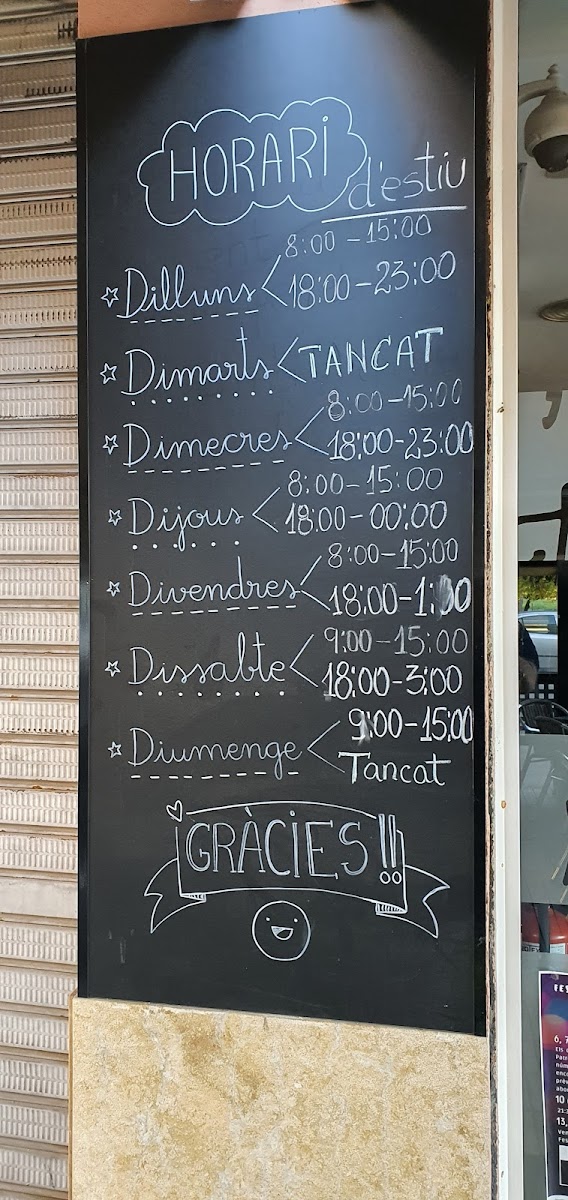 HORARI d'estiu
8:00-15:00
Dilluns 18:00-23:00
Dimarts TANCAT
8:00-15:00
Dimecres 18:00-23:00
8:00-15:00
Dijous 18:00-00:00
8:00-15:00
Divendres 18:00-1:00
9:00-15:00
Dissabte 18:00-3:00
9:00-15:00
Diumenge Tancat
GRÀCIES!!
6, 7
10
13,